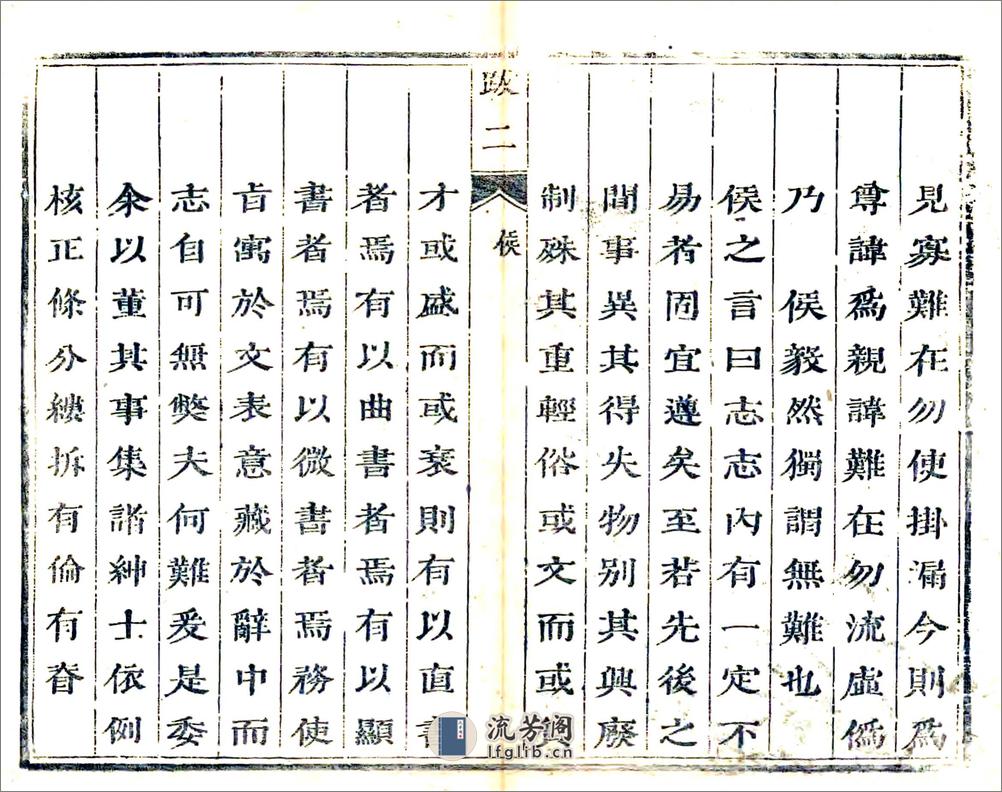 見寡難在勿使掛漏今則爲
尊諱爲親諱難在勿流虛僞
乃　侯毅然獨謂無難也
侯之言曰志志內有一定不
易者固宜遵矣至若先後之
間事異其得失物別其興廢
制殊其重輕俗或文而或
跋二
侯
才或盛而或衰則有以直書
者焉有以曲書者焉有以顯
書者焉有以微書者焉務使
旨寓於文表意藏於辭中而
志自可無獘夫何難爰是委
余以董其事集諸紳士依例
核正條分縷拆有倫有脊
流芳阁
lfglib.cn